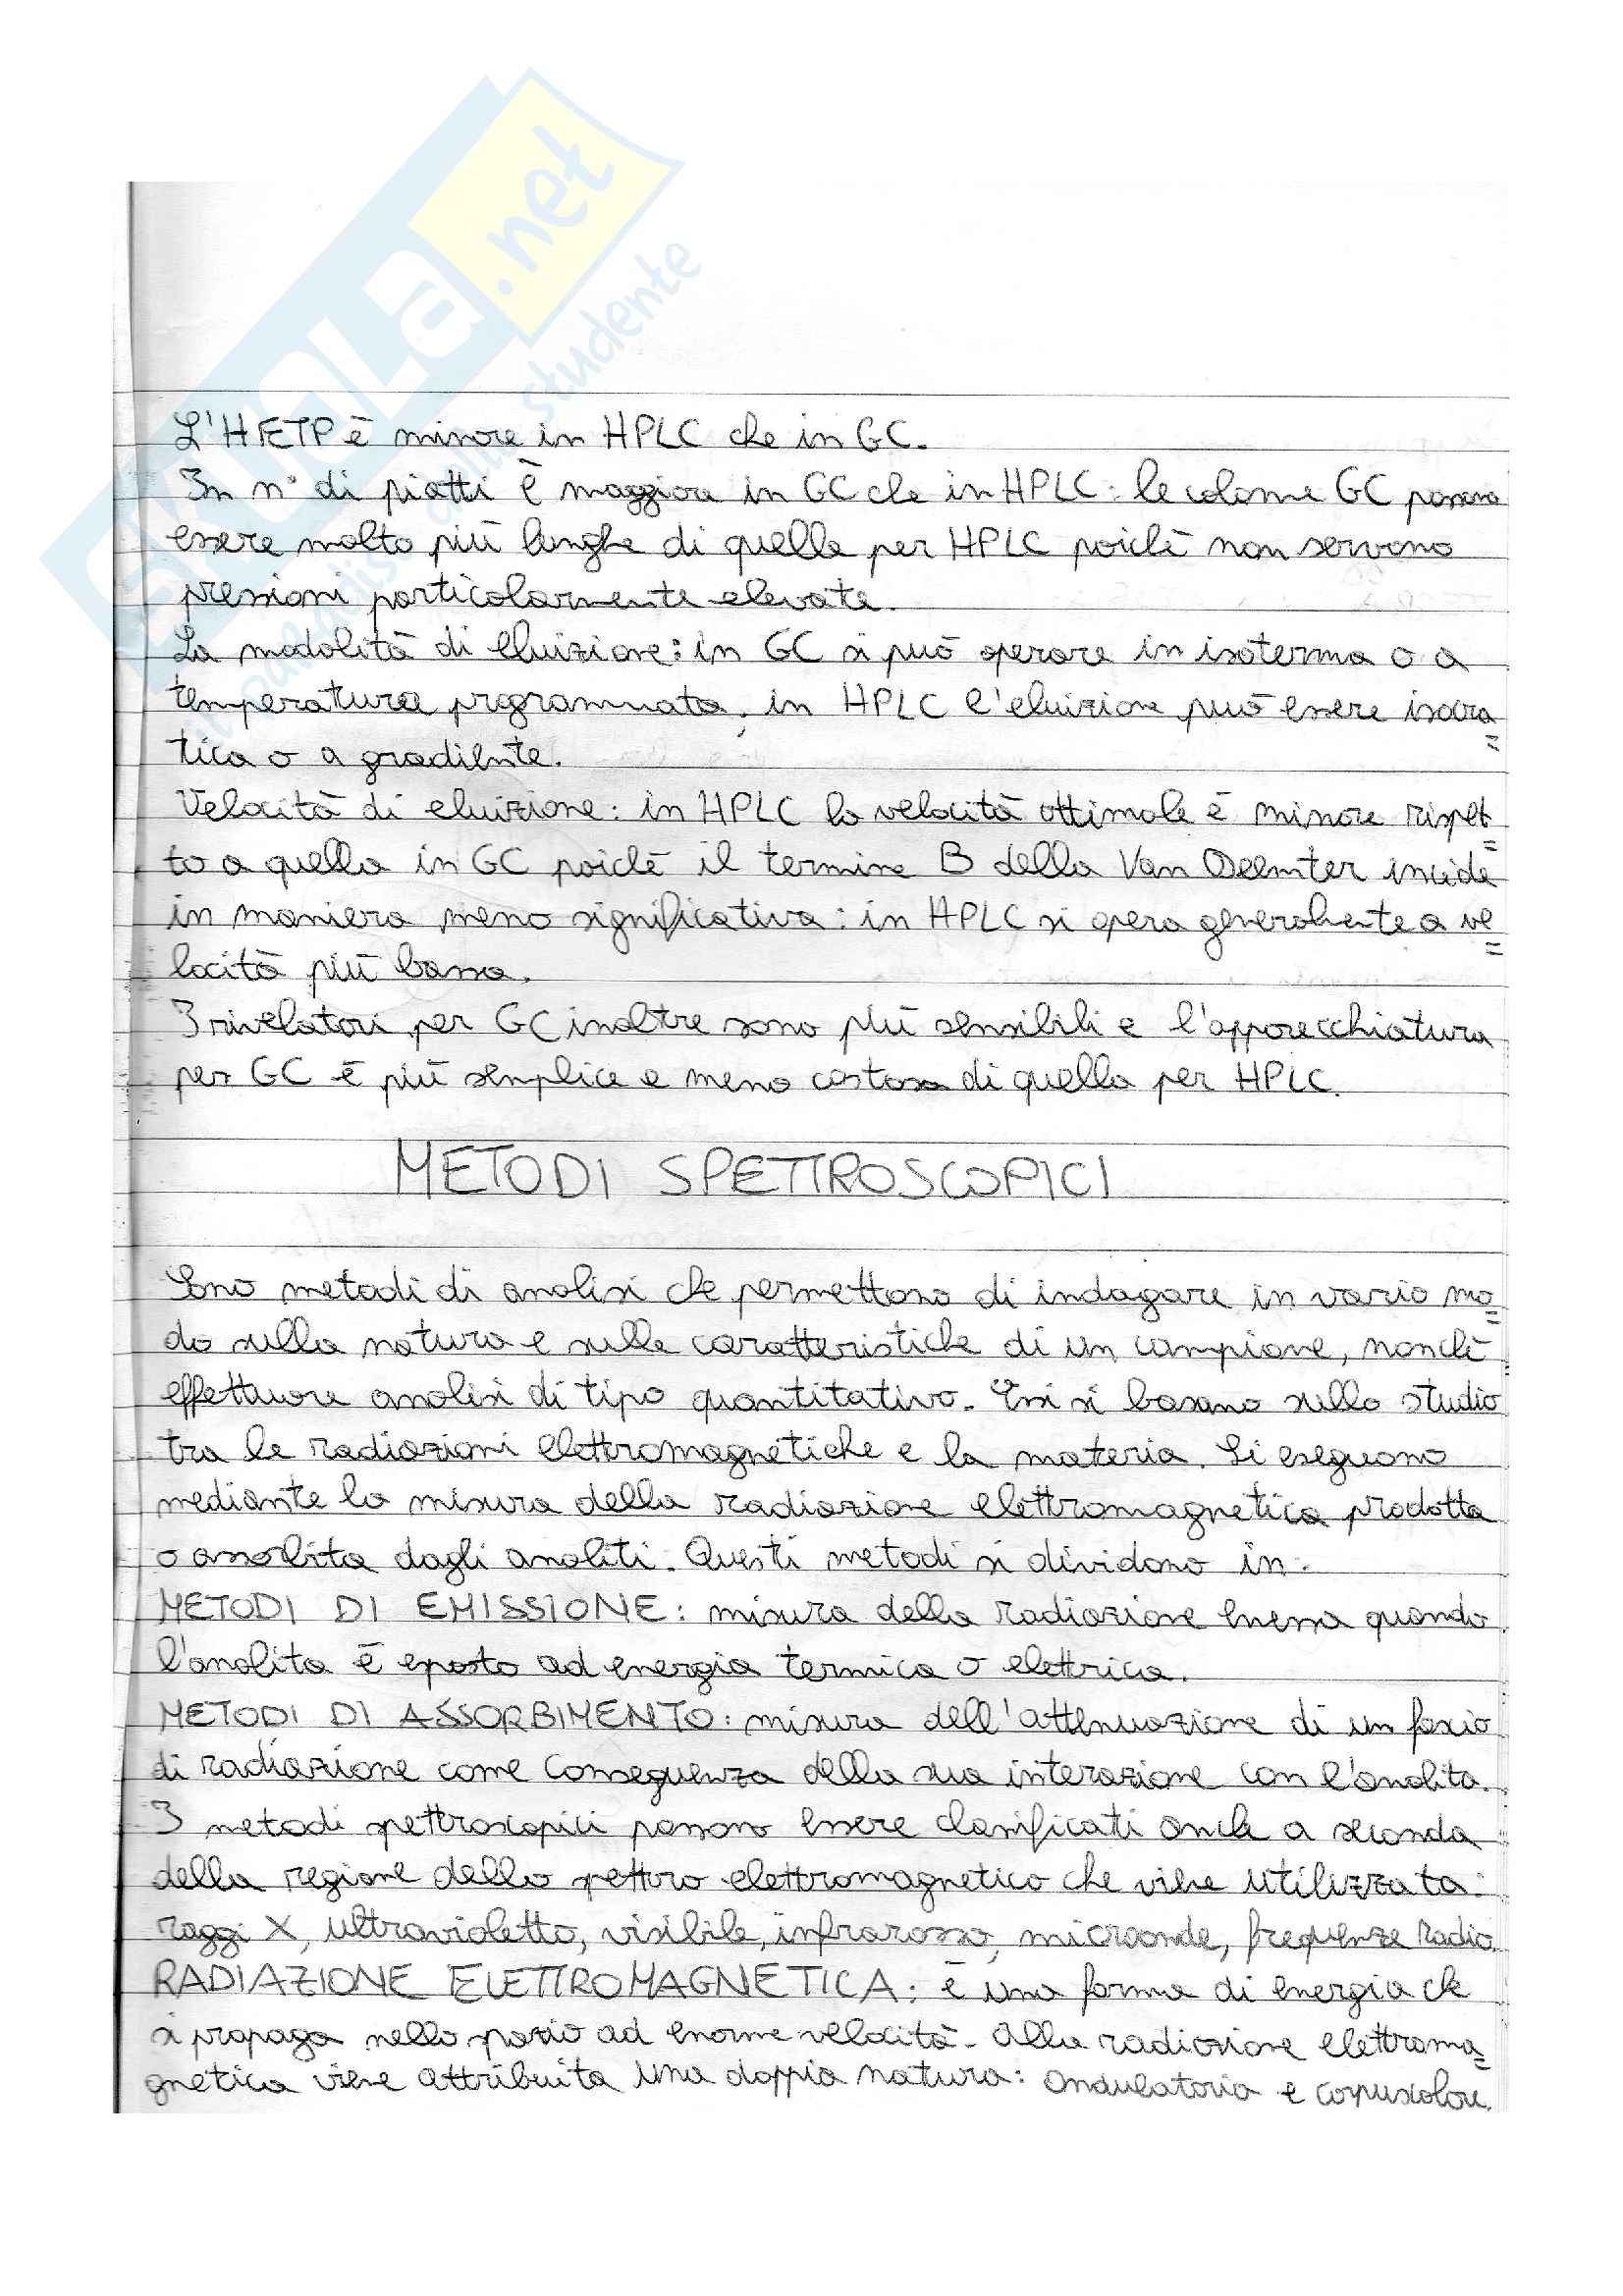 SKUOLA.net
il paradiso dello studente
L'HETP è minore in HPLC che in GC.
In n° di piatti è maggiore in GC che in HPLC: le colonne GC possono
essere molto più lunghe di quelle per HPLC poichè non servono
pressioni particolarmente elevate.
La modalità di eluizione: in GC si può operare in isoterma o a
temperatura programmata, in HPLC l'eluizione può essere isocra=
tica o a gradiente.
Velocità di eluizione: in HPLC la velocità ottimale è minore rispet=
to a quella in GC poichè il termine B della Van Deemter incide
in maniera meno significativa: in HPLC si opera generalmente a ve=
locità più bassa.
I rivelatori per GC inoltre sono più sensibili e l'apparecchiatura
per GC è più semplice e meno costosa di quella per HPLC.
METODI SPETTROSCOPICI
Sono metodi di analisi che permettono di indagare in vario mo=
do sulla natura e sulle caratteristiche di un campione, nonchè
effettuare analisi di tipo quantitativo. Essi si basano sullo studio
tra le radiazioni elettromagnetiche e la materia. Si eseguono
mediante la misura della radiazione elettromagnetica prodotta
o assorbita dagli analiti. Questi metodi si dividono in:
METODI DI EMISSIONE: misura della radiazione emessa quando
l'analita è esposto ad energia termica o elettrica.
METODI DI ASSORBIMENTO: misura dell'attenuazione di un fascio
di radiazione come conseguenza della sua interazione con l'analita.
I metodi spettroscopici possono essere classificati anche a seconda
della regione dello spettro elettromagnetico che viene utilizzata:
raggi X, ultravioletto, visibile, infrarosso, microonde, frequenze radio.
RADIAZIONE ELETTROMAGNETICA: è una forma di energia che
si propaga nello spazio ad enorme velocità. Alla radiazione elettroma=
gnetica viene attribuita una doppia natura: ondulatoria e corpuscolare.